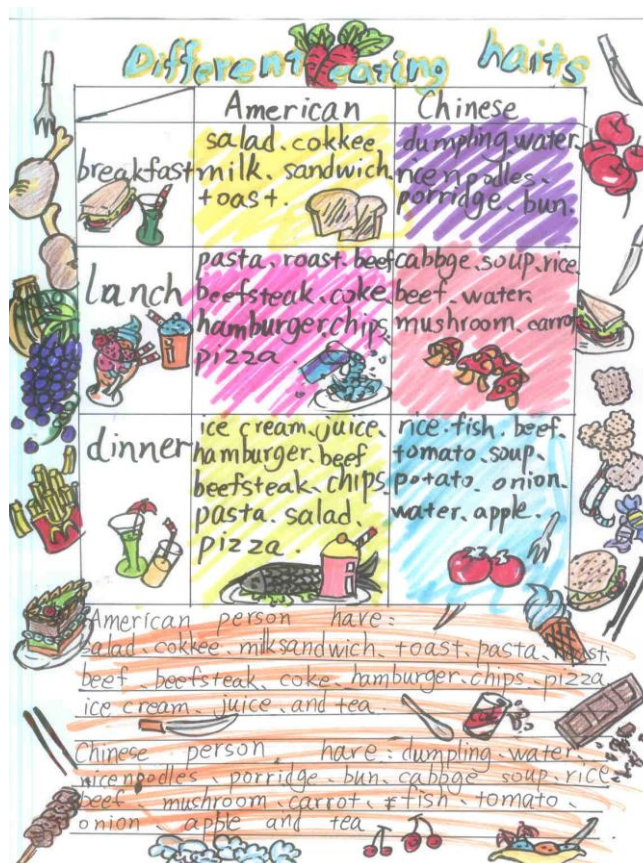 Different eating haits
American Chinese
breakfast
salad、cokkee、
milk、sandwich、
toast.
dumpling、water、
rice noodles、
porridge、bun.
lanch
pasta、roast、beef
beefsteak、coke、
hamburger、chips、
pizza.
cabbge、soup、rice、
beef、water、
mushroom、carrot
dinner
ice cream、juice、
hamburger、beef
beefsteak、chips、
pasta、salad、
pizza.
rice、fish、beef、
tomato、soup、
potato、onion、
water、apple.
American person have:
salad、cokkee、milksandwich、toast、pasta、roast、
beef、beefsteak、coke、hamburger、chips、pizza
ice cream、juice、and tea.
Chinese person have: dumpling、water、
rice noodles、porridge、bun、cabbge soup、rice
beef、mushroom、carrot、fish、tomato、
onion、apple and tea.